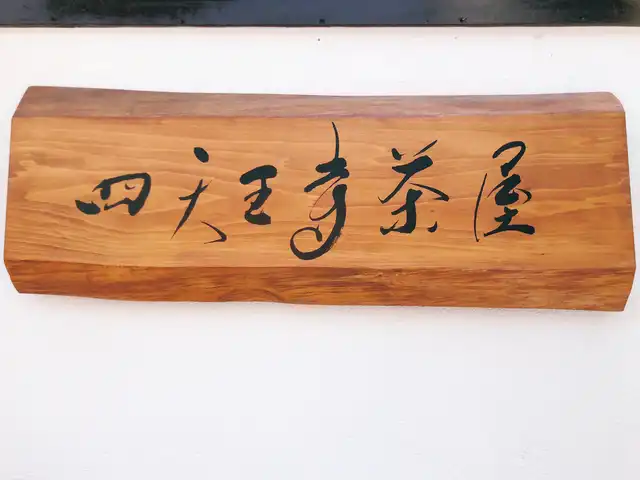 四天王寺茶屋